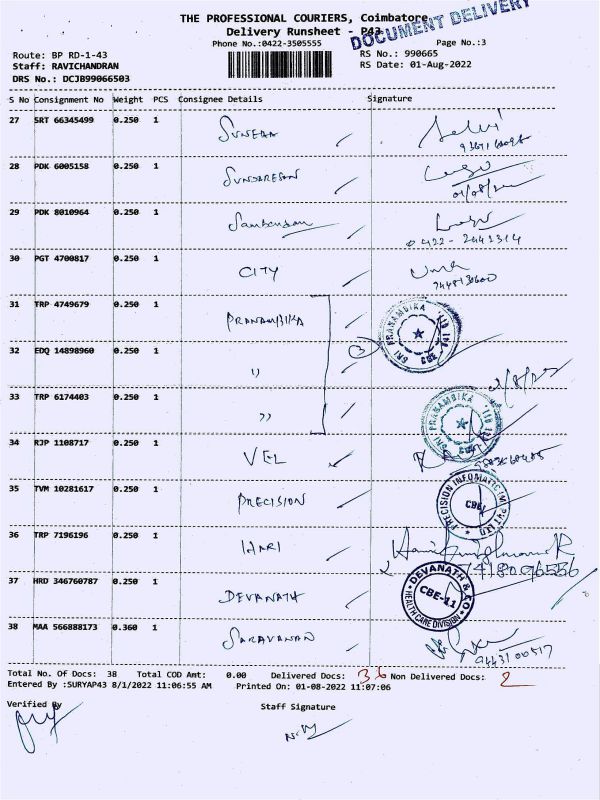 THE PROFESSIONAL COURIERS, Coimbatore
DOCUMENT DELIVERY
Delivery Runsheet - P43
Phone No.:0422-3505555
Page No.:3
Route: BP RD-1-43
RS No.: 990665
Staff: RAVICHANDRAN
RS Date: 01-Aug-2022
DRS No.: DCJB99066503
S No Consignment No Weight PCS Consignee Details Signature
27 SRT 66345499 0.250 1
28 PDK 6005158 0.250 1 SUNDARESAN
29 PDK 8010964 0.250 1
0422-2441314
30 PGT 4700817 0.250 1 CITY
31 TRP 4749679 0.250 1 PRANAMBIKA
SRI PRANAMBIKA
CBE
32 EDQ 14898960 0.250 1 "
3
33 TRP 6174403 0.250 1 "
SRI PRANAMBIKA
34 RJP 1108717 0.250 1 VEL
35 TVM 10281617 0.250 1 PRECISION
PRECISION INFOMATIC (M) PVT LTD
CBE
36 TRP 7196196 0.250 1 HARI
7418096556
37 HRD 346760787 0.250 1 DEVANATH
DEVANATH & CO
CBE-11
HEALTH CARE DIVISION
38 MAA 566888173 0.360 1 SARAVANAN
9443100517
Total No. Of Docs: 38 Total COD Amt: 0.00 Delivered Docs: 36 Non Delivered Docs: 2
Entered By :SURYAP43 8/1/2022 11:06:55 AM Printed On: 01-08-2022 11:07:06
Verified By
Staff Signature